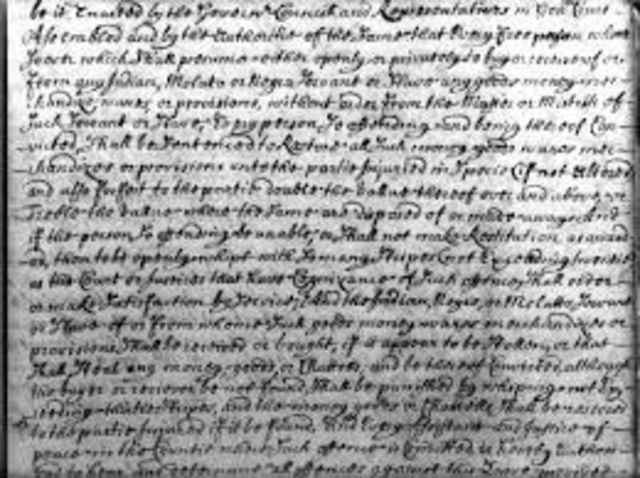 be it Enacted by the Governr Councill and Representatives in Genll Court
Assembled and by the Authoritie of the same that Every Free person whom
soever which shall presume either openly or privately to buy or receive of or
from any Indian, Molato or Negro Servant or Slave any goods money mer
chandize, wares, or provisions, without order from the Master or Mistress of
such Servant or Slave, Every person So offending and being thereof Con
victed, shall be Sentenced to Restore all such money goods wares mer
chandizes or provisions unto the partie Injured in Specie (if not altered
and also forfeit to the partie double the value thereof over and above, or
treble the value where the same are disposed of or made away, And
if the person So offending be unable, or shall not make Restitution as award
ed, then to be openly whipt with So many Stripes (not Exceeding twentie
as the Court or Justices that have Cognizance of Such offence, shall order
or make Satisfaction by Service, And the Indian, Negro, or Molatto, Servant
or Slave of or from whome Such goods money wares merchandizes or
provisions, shall be received or bought, if it appear to be Stollen, or that
shall Steal any money, goods, or Chattels, and be thereof Convicted, although
the buyer or receiver be not found, shall be punished by whiping not Ex
ceeding thirtie Stripes, and the money goods or Chattells shall be restored
to the partie Injured if it be found, And Every Assistant and Justice of
peace in the Countie where such offence is Comitted is hereby Authori
zed to hear and determine all offences against this Law